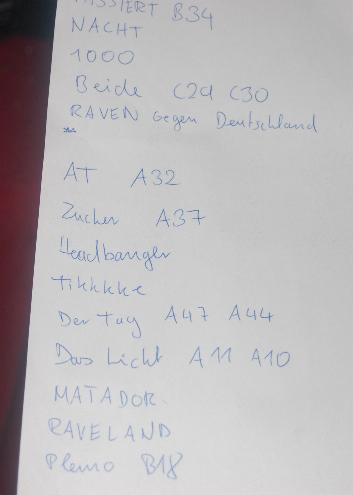 B34
NACHT
1000
Beide C29 C30
RAVEN Gegen Deutschland
AT A32
Zucker A37
Headbanger
tikkkke
Der Tag A47 A44
Das Licht A11 A10
MATADOR
RAVELAND
Plemo B18